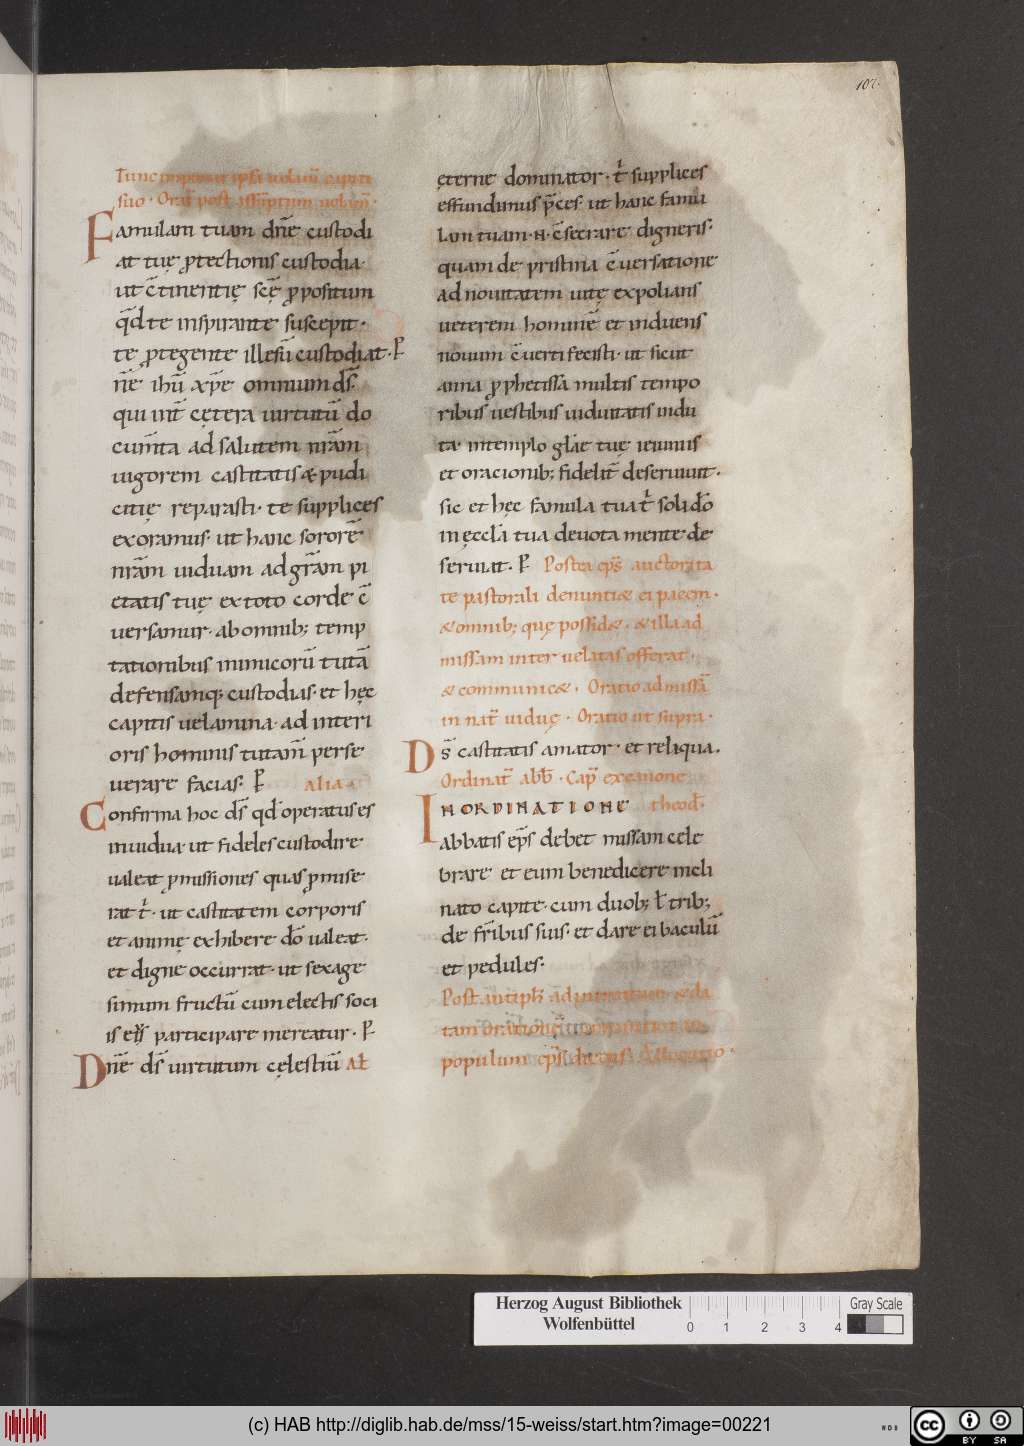 102.
Tunc imponat ipsa uelum̄ capiti
suo · Orat̄ post assūptum uelum̄ ·
Famulam tuam dn̄e custodi
at tuę ꝓtectionis custodia·
ut c̄tinentię sc̄ę ꝓpositum
qd̄ te inspirante suscepit ·
te ꝓtegente illesū custodiat · P̄
n̄e ihū xp̄e omnium ds̄·
qui int̄ cętera uirtutū do
cum̄ta ad salutem nr̄am
uigorem castitatis & pudi
citię reparasti· te supplices
exoramus· ut hanc sororē
nr̄am uiduam ad gr̄am pi
etatis tuę ex toto corde c̄
uersamur· ab omnib; temp
tationibus inimicorū tutā
defensamq; custodias· et hęc
capitis uelamina· ad interi
oris hominis tutam̄ perse
uerare facias· P̄ alia·
Confirma hoc ds̄ qd̄ operatus es
in uidua· ut fideles custodire
ualeat ꝓmissiones quas ꝓmise
rat t̄· ut castitatem corporis
et animę exhibere do̅ ualeat·
et digne occurrat· ut sexage
simum fructū cum electis soci
is eis̄ participare mereatur · P̄
Dn̄e ds̄ uirtutum cęlestiū Al̄
ęterne dominator · t̄ supplices
effundimus p̄ces· ut hanc famu
lam tuam · N · c̄secrare digneris·
quam de pristina c̄uersatione
ad nouitatem uitę expolians
ueterem hominē et induens
nouum c̄uerti fecisti· ut sicut
anna ꝓphetissa multis tempo
ribus uestibus uiduitatis indu
ta· in templo glae tuę ieiuniis
et oracionib; fidelit̄ deseruiuit·
sic et hęc famula tua t̄ soli do̅
in ęccla̅ tua deuota mente de
seruiat · P̄ Postea eps̄ auctorita
te pastorali denunti& ei pacem·
& omnib; quę possid&· & illa ad
missam inter uelatas offerat·
& communic&· Oratio ad missā
in nat̄ uiduę · Oratio ut supra ·
Ds̄ castitatis amator · et reliqua.
Ordinat̄ abb̄ · Cap̄ ex canone
IN ORDINATIONE theod̄·
abbatis ep̄s debet missam cele
brare et eum benedicere incli
nato capite· cum duob; l̄ trib;
de fr̄ibus suis· et dare ei baculū
et pedules·
Post antiph̄ ad introitum & da
tam orationē
populum ep̄s dicens Allocutio ·
Herzog August Bibliothek
Wolfenbüttel
0 1 2 3 4
Gray Scale
(c) HAB http://diglib.hab.de/mss/15-weiss/start.htm?image=00221
HAB
cc BY SA